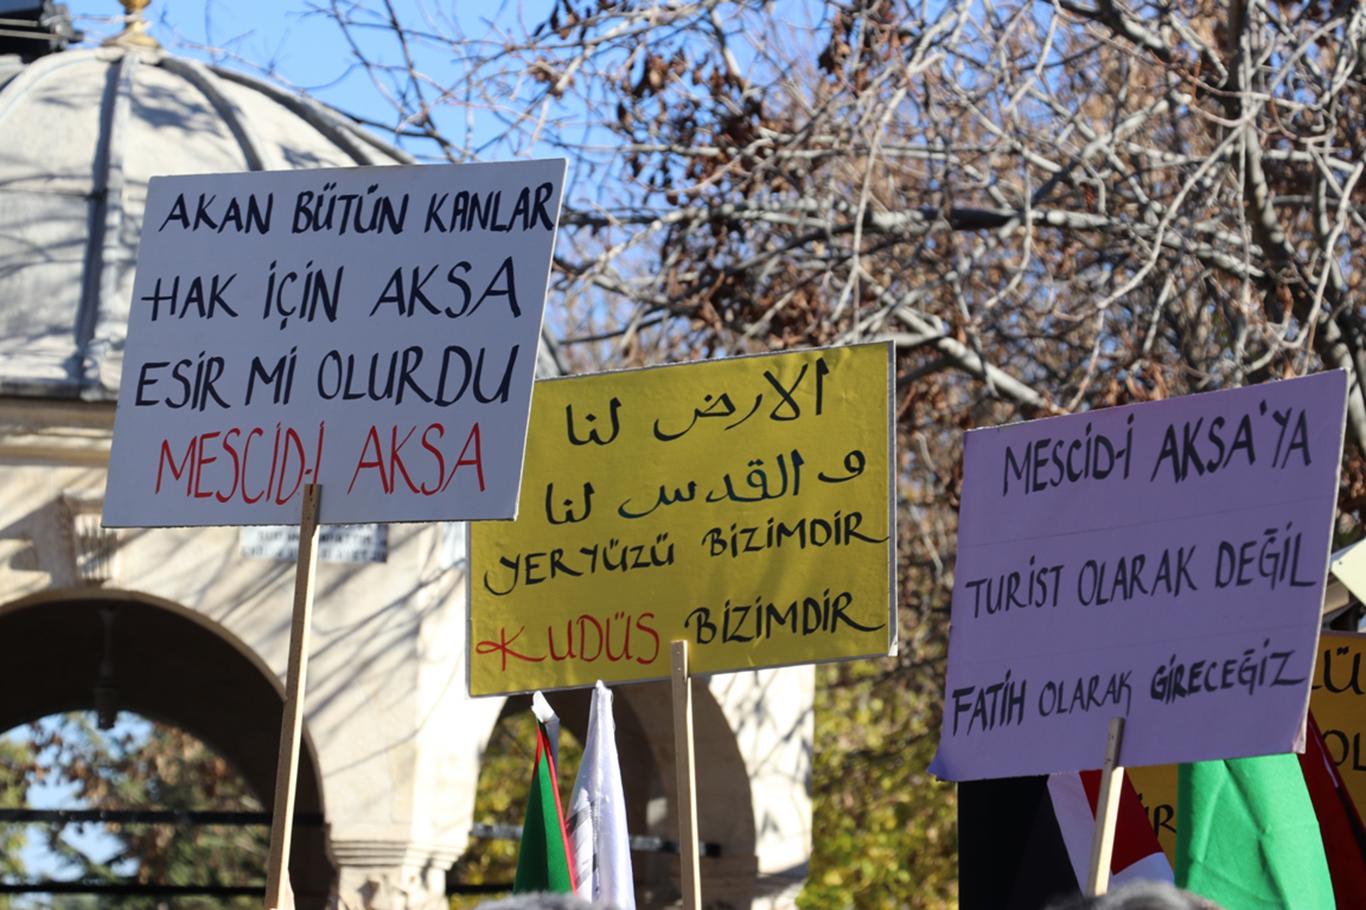 AKAN BÜTÜN KANLAR
HAK İÇİN AKSA
ESİR Mİ OLURDU
MESCİD-İ AKSA
الارض لنا
و القدس لنا
YERYÜZÜ BİZİMDİR
KUDÜS BİZİMDİR
MESCİD-İ AKSA'YA
TURİST OLARAK DEĞİL
FATİH OLARAK GİRECEĞİZ